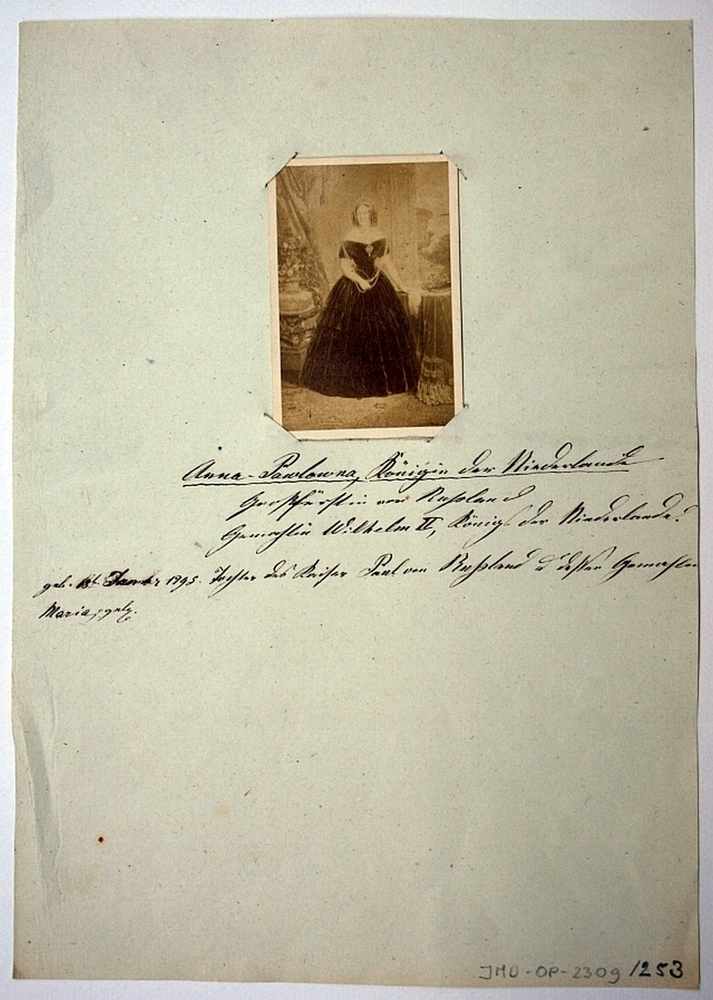 Anna-Pawlowna, Königin der Niederlande
Großfürstin von Rußland
Gemahlin Wilhelm II, Königs der Niederlande.
geb. 18t Januar 1795. Tochter des Kaiser Paul von Rußland u dessen Gemahlin
Maria, gelz.
JMO-OP-2309/253